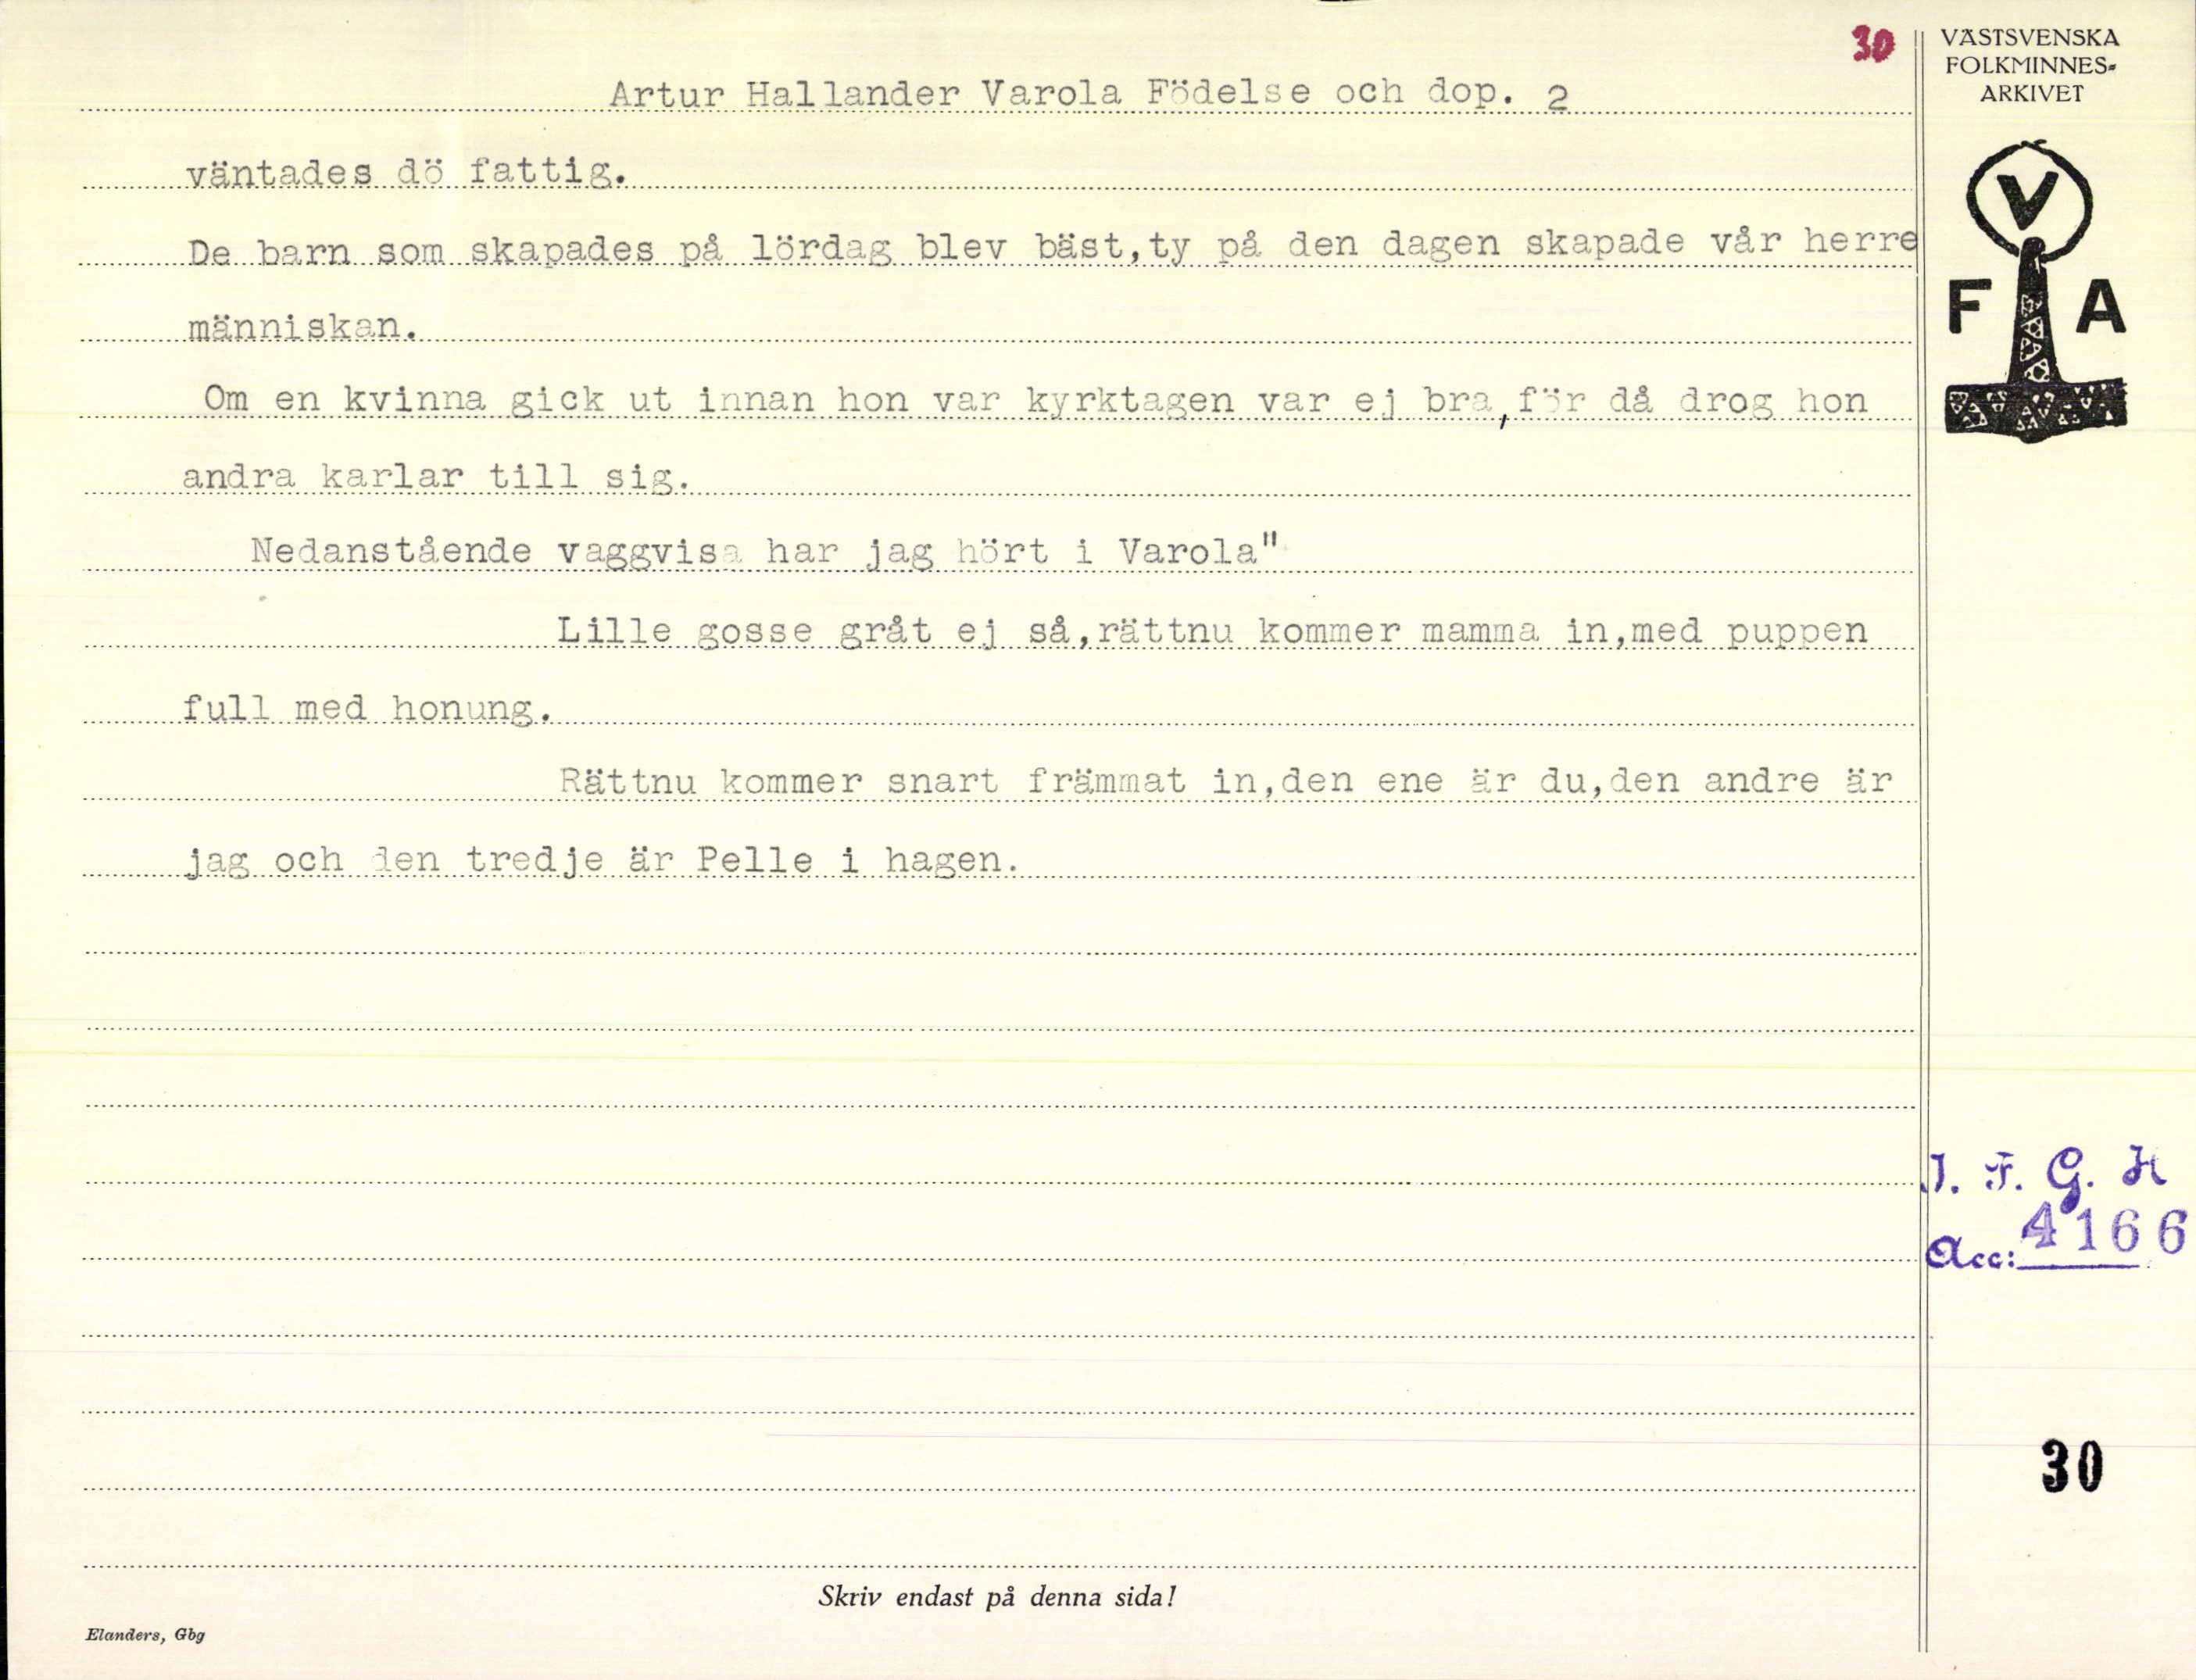 30
VÄSTSVENSKA
FOLKMINNES-
ARKIVET
V
F A
Artur Hallander Varola Födelse och dop. 2
väntades dö fattig.
De barn som skapades på lördag blev bäst,ty på den dagen skapade vår herre
människan.
Om en kvinna gick ut innan hon var kyrktagen var ej bra,för då drog hon
andra karlar till sig.
Nedanstående vaggvisa har jag hört i Varola"
Lille gosse gråt ej så,rättnu kommer mamma in,med puppen
full med honung.
Rättnu kommer snart främmat in,den ene är du,den andre är
jag och den tredje är Pelle i hagen.
I. F. G. H
Acc: 4166
30
Skriv endast på denna sida!
Elanders, Gbg